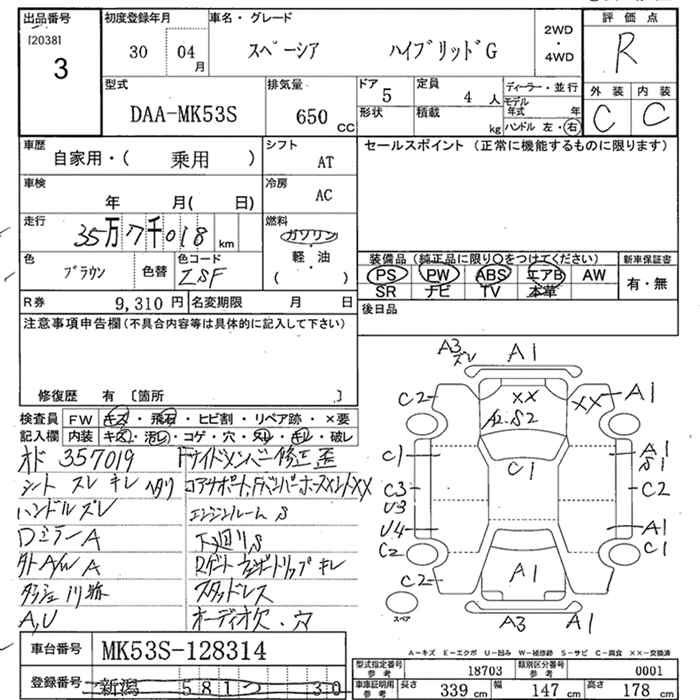 出品番号 初度登録年月 車名・グレード 評価点
[2038] 3 30 04月 スペーシア ハイブリッドG 2WD・4WD R
型式 排気量 ドア 5 定員 4人 ディーラー・並行 外装 内装
DAA-MK53S 650 CC 形状 積載 kg モデル年式 年 C C
ハンドル 左・右
車歴 シフト セールスポイント (正常に機能するものに限ります)
自家用・( 乗用 ) AT
車検 冷房
年 月( 日) AC
走行 燃料
35万7千018 km ガソリン・軽・油 ( )
色 ブラウン 色替 色コード ZSF
装備品 (純正品に限り○をつけてください) 新車保証書
PS PW ABS エアB AW 有・無
SR ナビ TV 本革
R券 9,310円 名変期限 月 日 後日品
注意事項申告欄 (不具合内容等は具体的に記入して下さい)
修復歴 有 [箇所 ]
検査員 FW キズ・飛石・ヒビ割・リペア跡・×要
記入欄 内装 キズ・汚レ・コゲ・穴・スレ・キレ・破レ
オド 357019 Fサイドメンバー修正歪
シート スレ キレ ヘタリ コアサポート、Fバンパーホースメント××
ハンドルズレ エンジンルーム S
Dミラー A 下廻りS
外AW A
スタッドレス
A,U オーディオ欠、穴
車台番号 MK53S-128314
登録番号 新潟 581 つ 30
A3 ズレ A1
C2 ×× ×× A1
A2.S2
C1 C1 A1 S1
C3 C2
U3
U4 A1
C2 C1
C2 A1
スペア A3 A1
A-キズ E-エクボ U-凹み W-補修跡 S-サビ C-腐食 ××-交換済
型式指定番号 参考 18703 類別区分番号 参考 0001
車庫証明用 参考 長さ 339 cm 幅 147 cm 高さ 178 cm